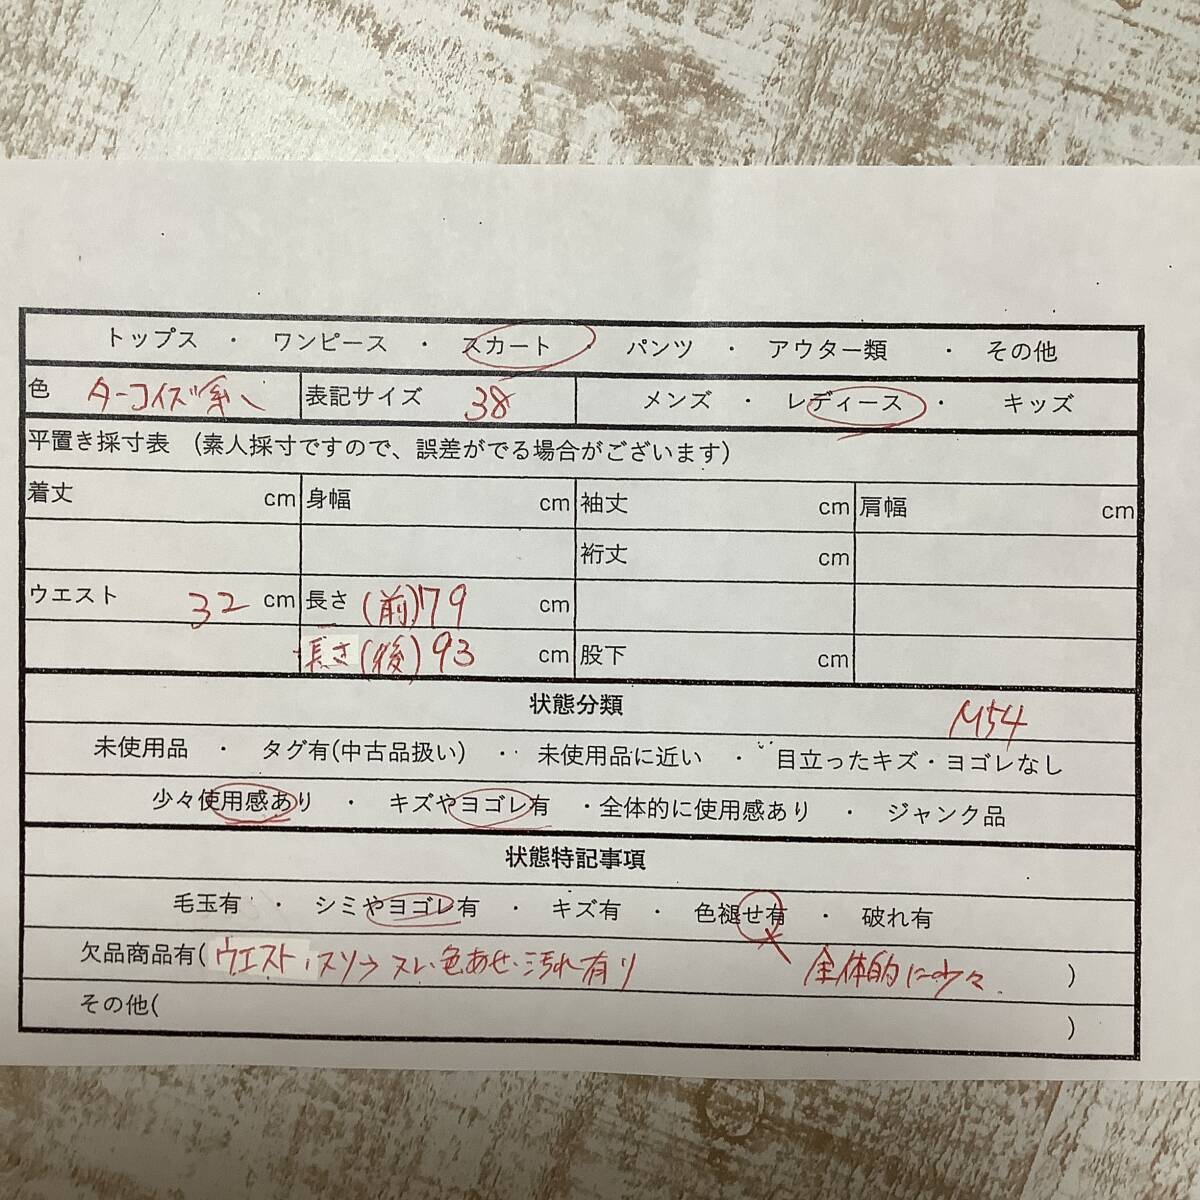 トップス ・ ワンピース ・ スカート ・ パンツ ・ アウター類 ・ その他
色 ターコイズ系 表記サイズ 38 メンズ ・ レディース ・ キッズ
平置き採寸表 (素人採寸ですので、誤差がでる場合がございます)
着丈 cm 身幅 cm 袖丈 cm 肩幅 cm
裄丈 cm
ウエスト 32 cm 長さ (前)79 cm
長さ(後)93 cm 股下 cm
状態分類
M54
未使用品 ・ タグ有(中古品扱い) ・ 未使用品に近い ・ 目立ったキズ・ヨゴレなし
少々使用感あり ・ キズやヨゴレ有 ・全体的に使用感あり ・ ジャンク品
状態特記事項
毛玉有 ・ シミやヨゴレ有 ・ キズ有 ・ 色褪せ有 ・ 破れ有
欠品商品有( ウエスト、スソ スレ、色あせ、汚れ有り 全体的に少々 )
その他( )